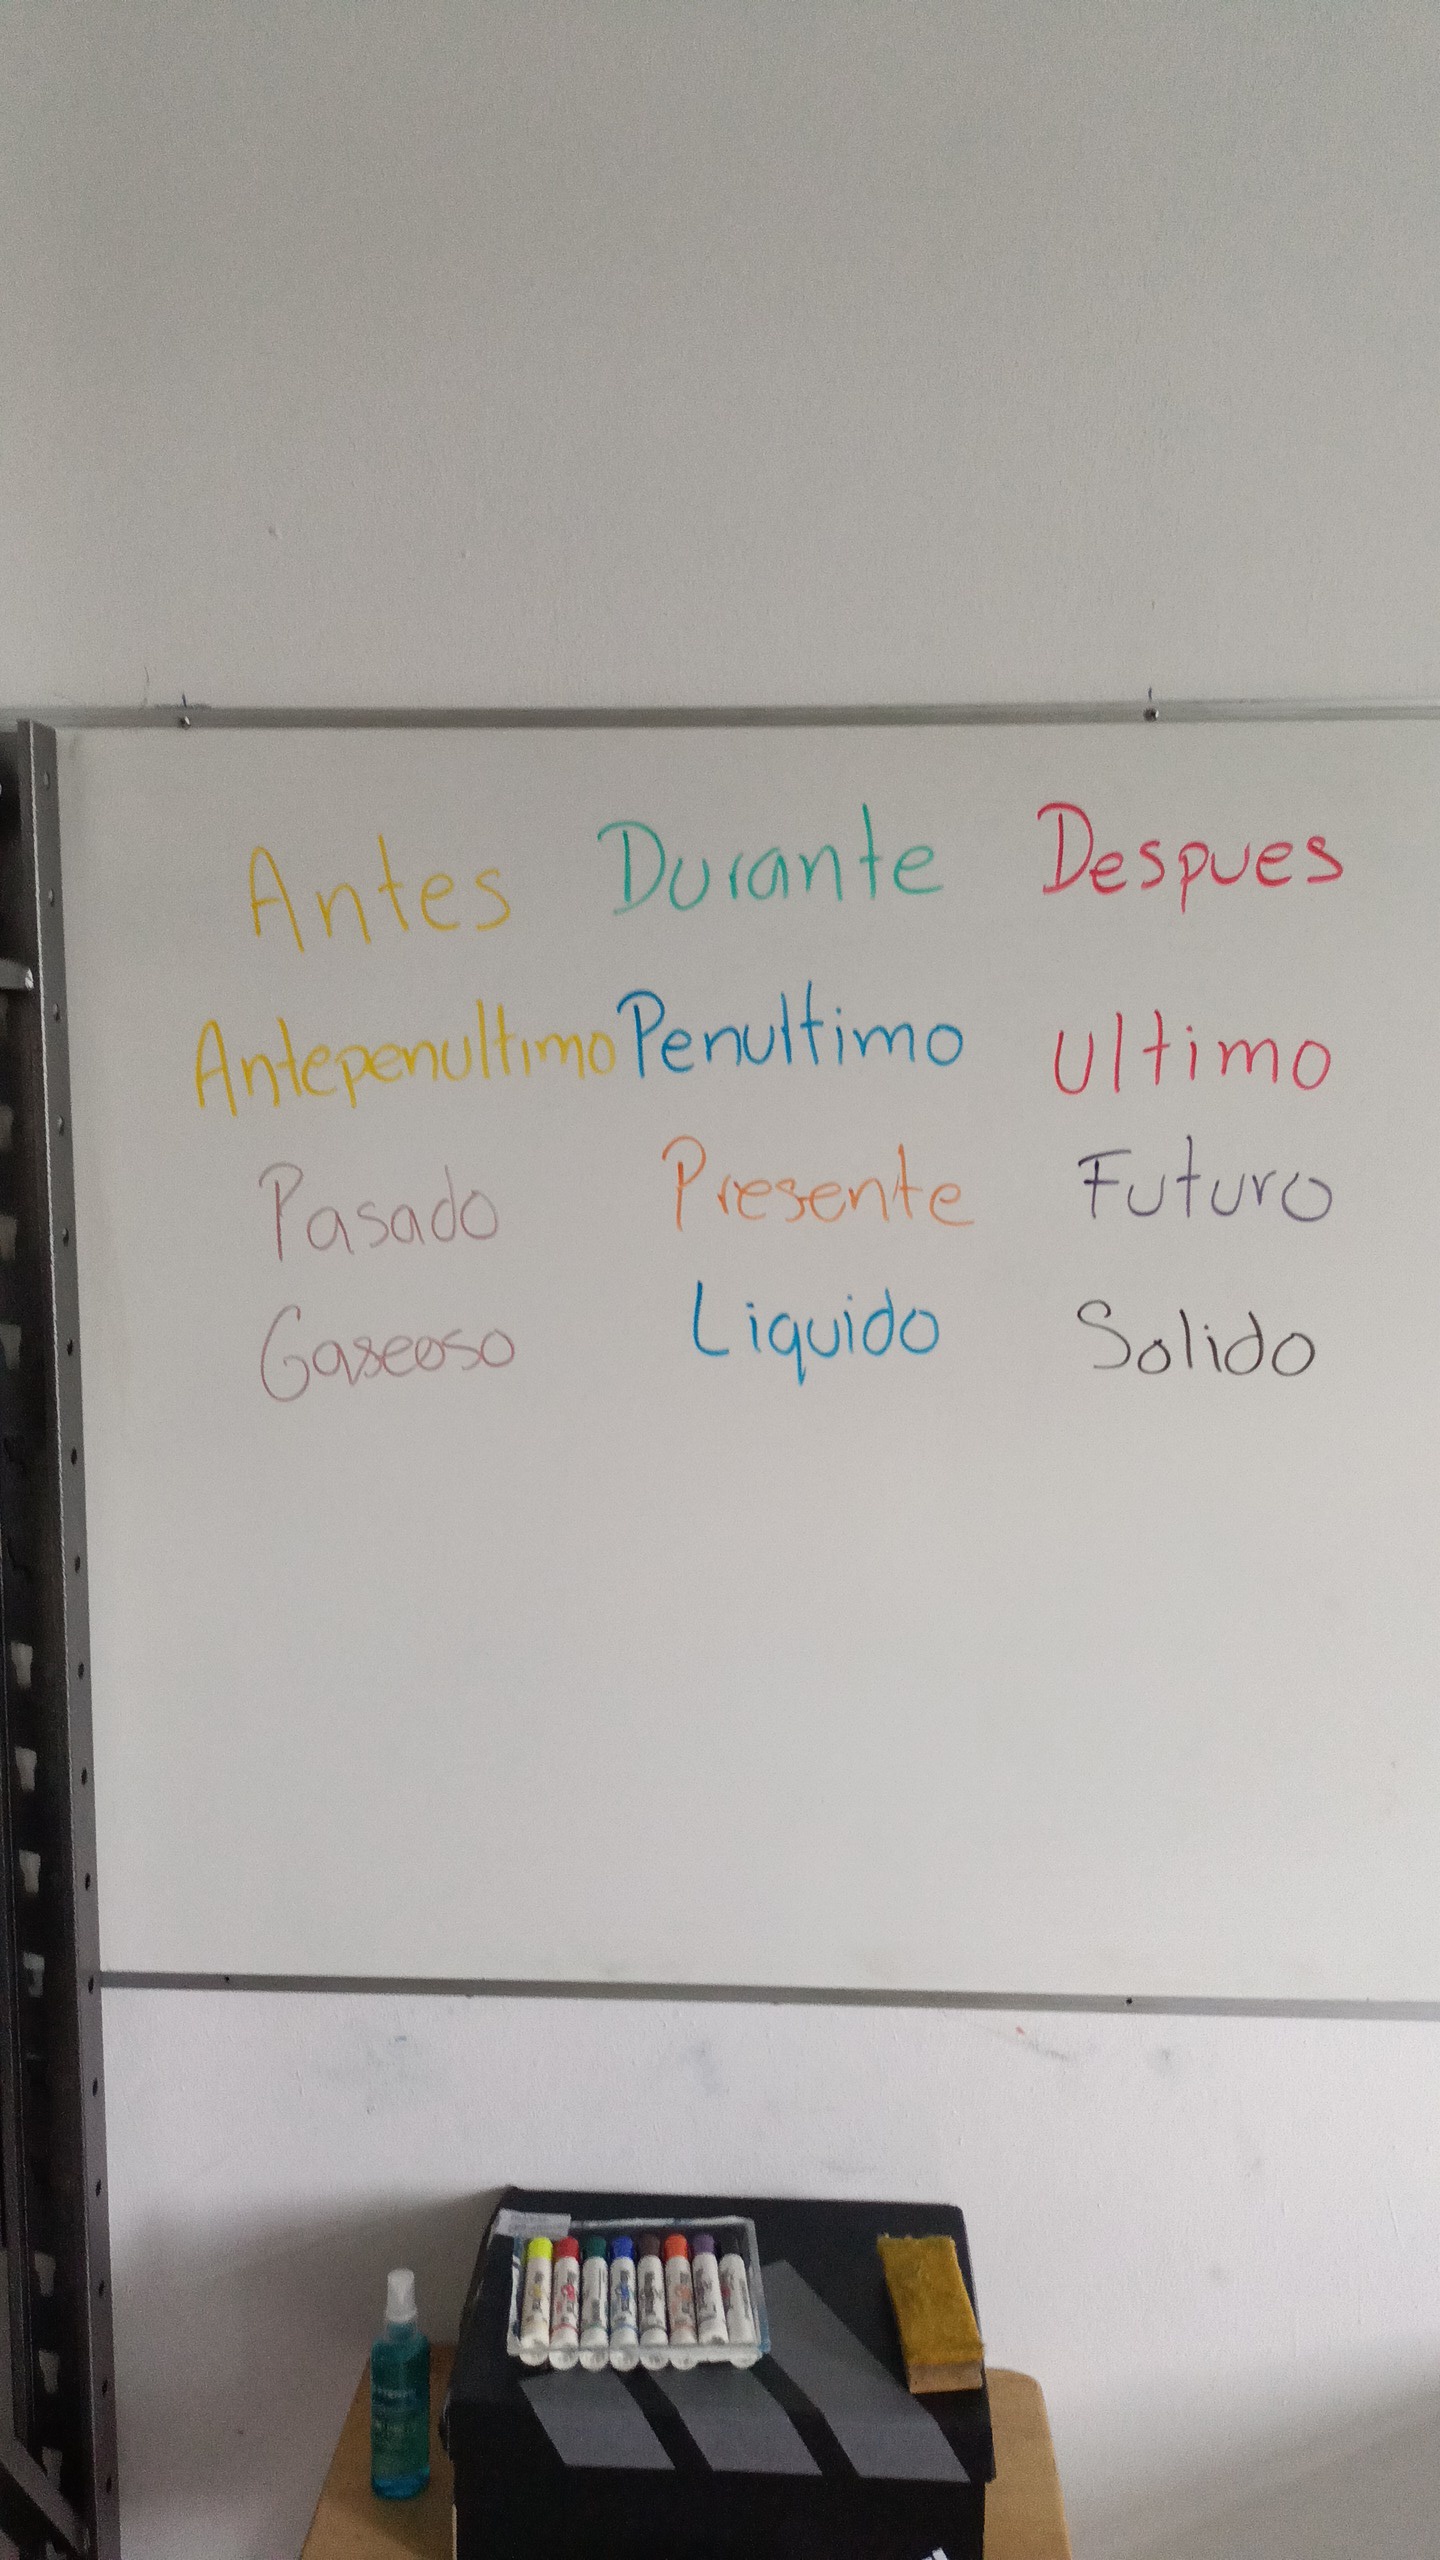 Antes Durante Despues
Antepenultimo Penultimo Ultimo
Pasado Presente Futuro
Gaseoso Liquido Solido